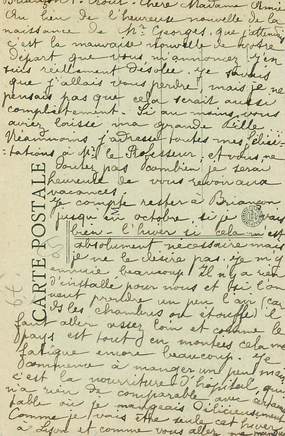 Briançon 1. Août. Chère Madame Amie
Au lieu de l'heureuse nouvelle de la
naissance de Mr Georges, que j'attendais
c'est la mauvaise nouvelle de votre
départ que vous m'annoncez. J'en
suis réellement désolée. Je savais
que j'allais vous perdre, mais je ne
pensais pas que cela serait aussi
complètement. Si au moins vous
aviez laissé ma grande fille.
Néanmoins j'adresse toutes mes félici-
-tations à Mr le Professeur, et vous ne
doutez pas combien je serai
heureuse de vous revoir aux
vacances.
Je compte rester à Briançon
jusqu'en octobre, si je vais
bien - l'hiver si cela m'est
absolument nécessaire mais
je ne le désire pas. Je m'y
ennuie beaucoup. Il n'y a rien
d'installé pour nous et si l'on
veut prendre un peu l'air (car
ds les chambres on étouffe) il
faut aller assez loin et comme le
pays est tout en montées cela me
fatigue encore beaucoup. Je
commence à manger un peu mais
c'est la nourriture d'hôpital, qui
n'a rien de comparable avec certaine
table où je mangeais délicieusement
Comme je vais être seule cet hiver
à Lyon et comme vous allez me manquer
CARTE POSTALE